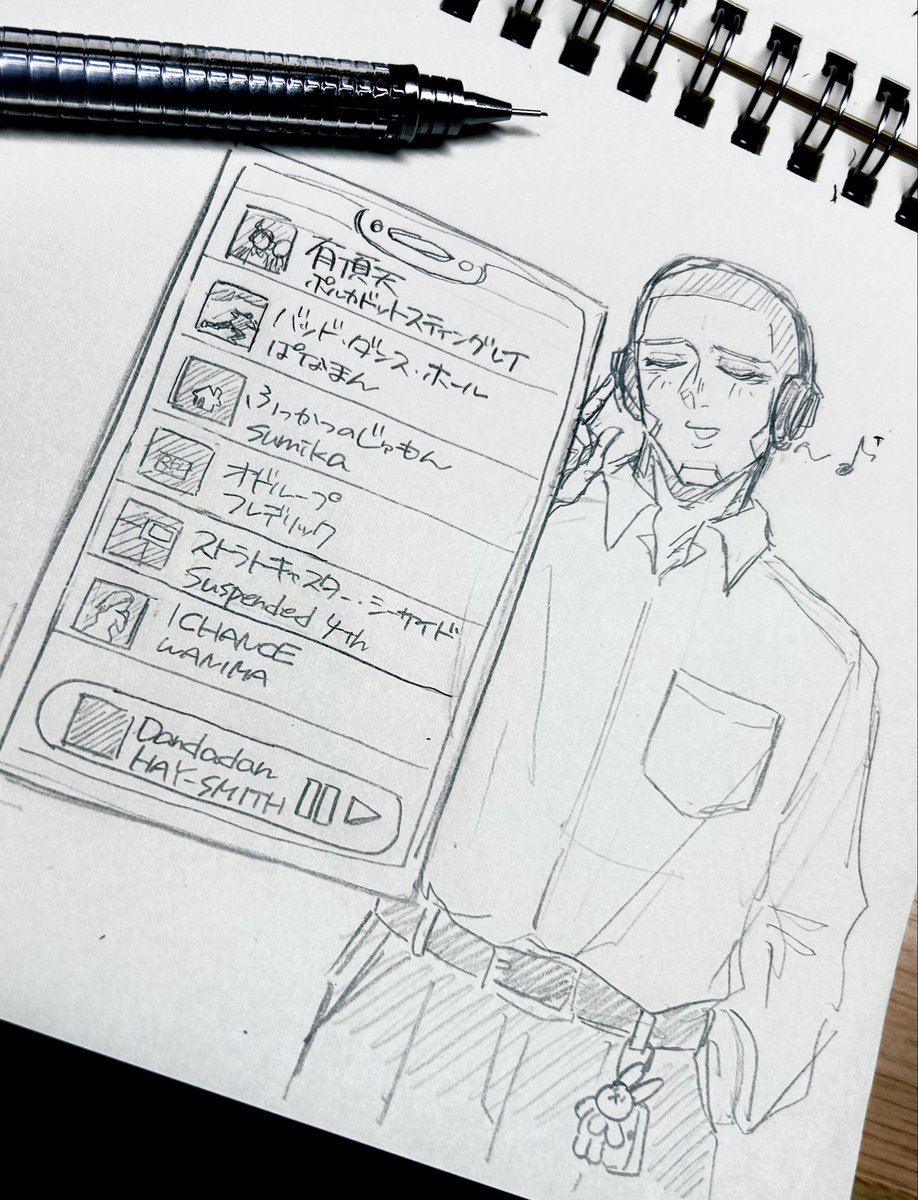 有頂天
ポルカドットスティングレイ
バッド・ダンス・ホール
ぱなまん
ふっかつのじゅもん
sumika
オドループ
フレデリック
ストラトキャスター・シーサイド
Suspended 4th
1CHANCE
WANIMA
Dandadan
HAY-SMITH